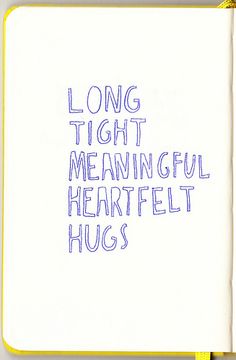 LONG
TIGHT
MEANINGFUL
HEARTFELT
HUGS